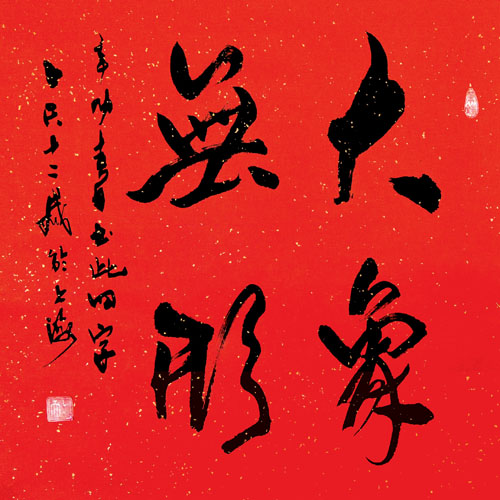 大象
無形
辛卯春月书此四字
十二歲於上海